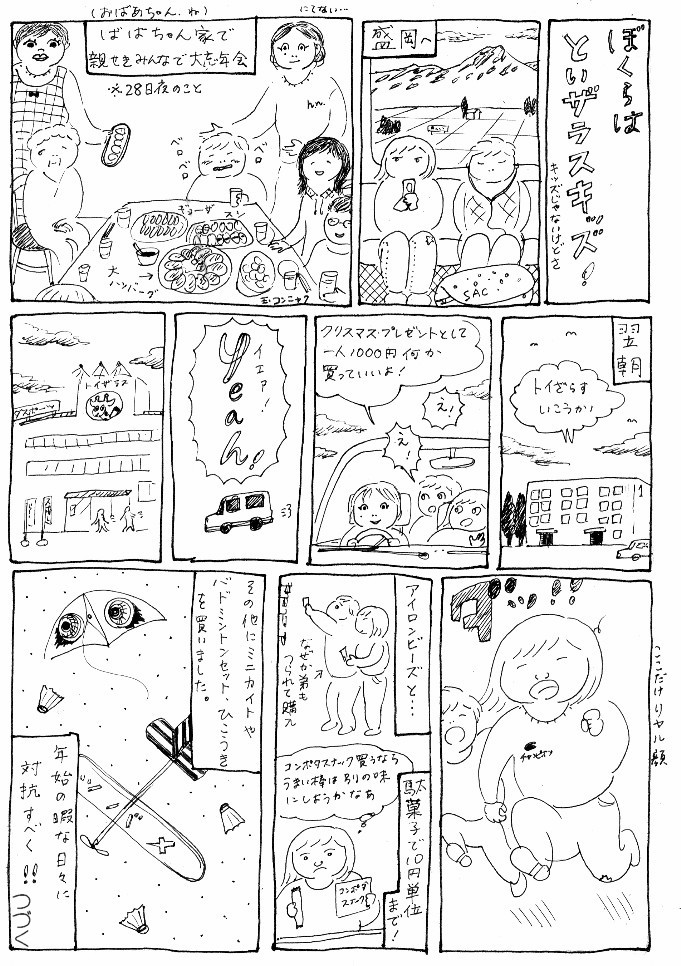 ぼくらは
といザラスキッズ!
キッズじゃないけどさ
盛岡へ
SAC
(おばあちゃん.ね)
にてない…
ばばちゃん家で
親せきみんなで大忘年会
※28日夜のこと
h.m.
ベロ
ベロ
ベロ
ギョーザ
スシ
大
ハンバーグ
玉コンニャク
翌朝
トイざらす
いこうか
クリスマス・プレゼントとして
一人1000円何か
買っていいよ!
え!
え!
イエア!
Yeah!
トイザラス
スポーツ
ここだけリヤル顔
チャンピオン
アイロンビーズと…
なぜか弟も
つられて購入
コンポタスナック買うなら
うまい棒は別の味
にしようかなあ
駄菓子で10円単位
まで!
コンポタ
スナック
その他にミニカイトや
バドミントンセット、ひこうき
を買いました。
年始の暇な日々に
対抗すべく!!